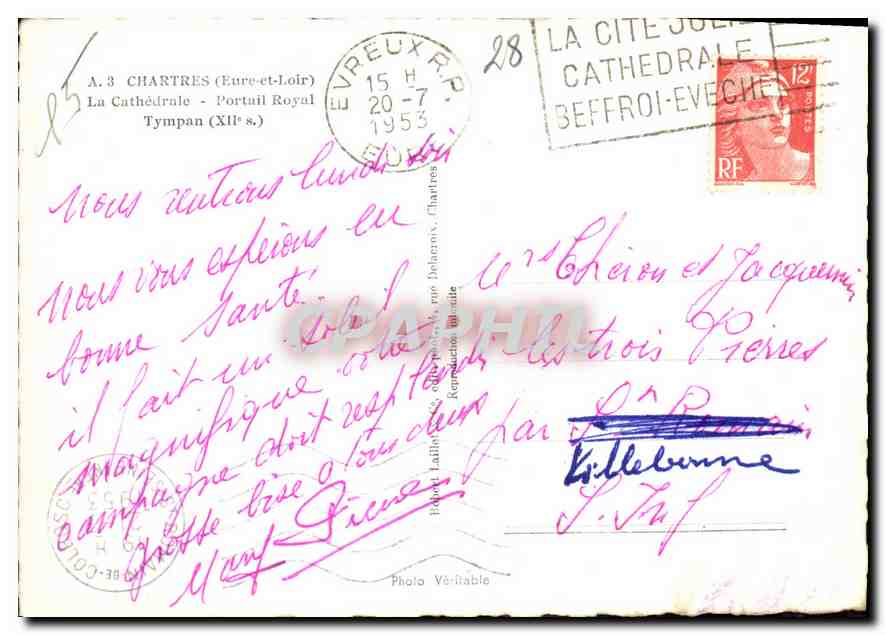 15
A. 3 CHARTRES (Eure-et-Loir)
La Cathédrale - Portail Royal
Tympan (XIIe s.)
EVREUX R.P.
15 H
20-7
1953
EURE
28
LA CITE JOLIE
CATHEDRALE
BEFFROI-EVECHE
12F
POSTES
RF
Nous rentrons lundi soir
Nous vous espérons en
bonne santé
il fait un soleil
magnifique votre
campagne doit resplendir
grosse bise a tous deux
Pierre
Robert Laillet, rue Delacroix, Chartres
Reproduction interdite
CPAPHIL
Mrs Chéron et Jacquemin
les trois Pierres
par St Romain
Lillebonne
S. Inf
Photo Véritable